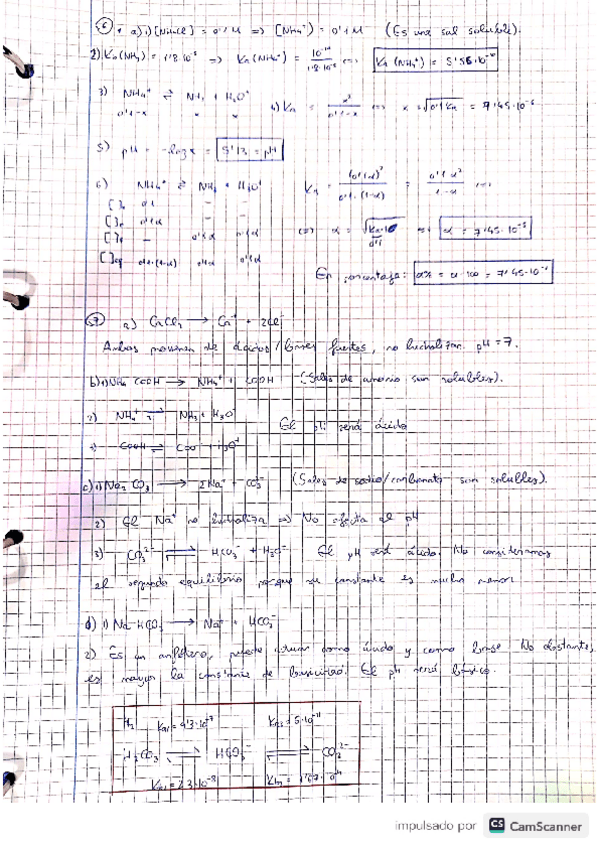 6. a) 1) [NH₄Cl] = 0'1 M => [NH₄⁺] = 0'1 M (Es una sal soluble).
2) Kb(NH₃) = 1'8·10⁻⁵ => Ka(NH₄⁺) = 10⁻¹⁴ / 1'8·10⁻⁵ => Ka(NH₄⁺) = 5'56·10⁻¹⁰
3) NH₄⁺ ⇌ NH₃ + H₃O⁺ 4) Ka = x² / 0'1-x => x = √0'1·Ka = 7'45·10⁻⁶
0'1-x x x
5) pH = -log x = 5'12 = pH
6) NH₄⁺ ⇌ NH₃ + H₃O⁺ Ka = (0'1α)² / 0'1·(1-α) = 0'1α² / 1-α
[ ]₀ 0'1 - -
[ ]r 0'1α - -
[ ]f - 0'1α 0'1α => α = √Ka·10 / 0'1 => α = 7'45·10⁻⁵
[ ]eq 0'1·(1-α) 0'1α 0'1α
En porcentaje: α% = α·100 = 7'45·10⁻³
57 a) CaCl₂ → Ca + 2Cl⁻
Ambos provienen de ácidos/bases fuertes, no hidrolizan. pH = 7.
b) 1) NH₄COOH → NH₄⁺ + COOH (Sales de amonio son solubles).
2) NH₄⁺ ⇌ NH₃ + H₃O⁺
El pH será ácido
COOH ⇌ COO⁻ + H₃O⁺
c) 1) Na₂CO₃ → 2Na⁺ + CO₃²⁻ (Sales de sodio/carbonato son solubles).
2) El Na⁺ no hidroliza => No afecta al pH
3) CO₃²⁻ ⇌ HCO₃⁻ + H₃O⁺ El pH será ácido. No consideramos
el segundo equilibrio porque su constante es mucho menor
d) 1) NaHCO₃ → Na⁺ + HCO₃⁻
2) Es un anfótero, puede actuar como ácido y como base No obstante,
es mayor la constante de basicidad. El pH será básico.
Ka₁ = 4'3·10⁻⁷ Ka₂ = 5·10⁻¹¹
H₂CO₃ ⇌ HCO₃⁻ ⇌ CO₃²⁻
Kb₁ = 2'3·10⁻⁸
impulsado por CS CamScanner